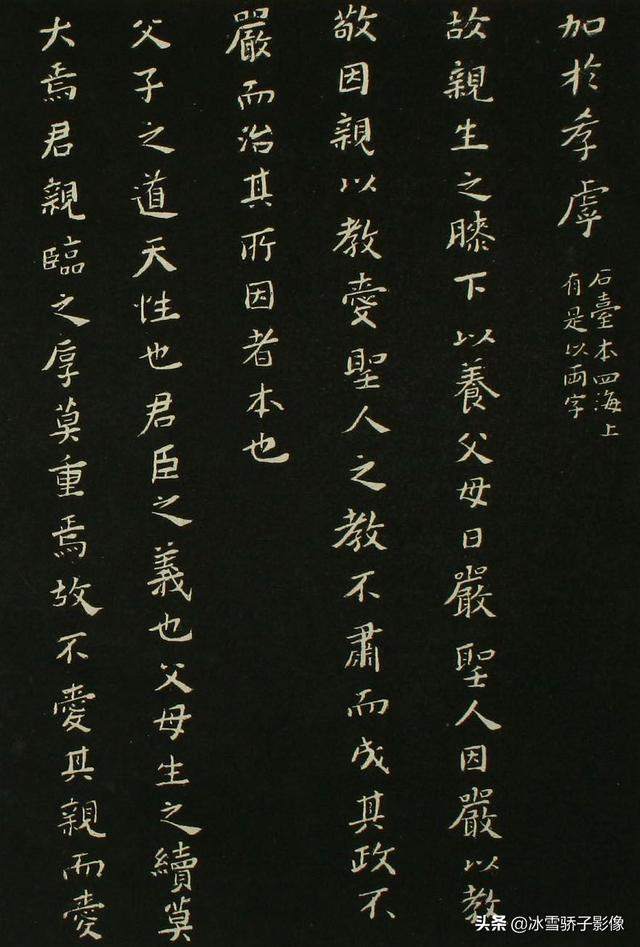 加於孝虖
石臺本四海上
有是以兩字
故親生之膝下以養父母日嚴聖人因嚴以教
敬因親以教愛聖人之教不肅而成其政不
嚴而治其所因者本也
父子之道天性也君臣之義也父母生之續莫
大焉君親臨之厚莫重焉故不愛其親而愛
头条 @冰雪骄子影像